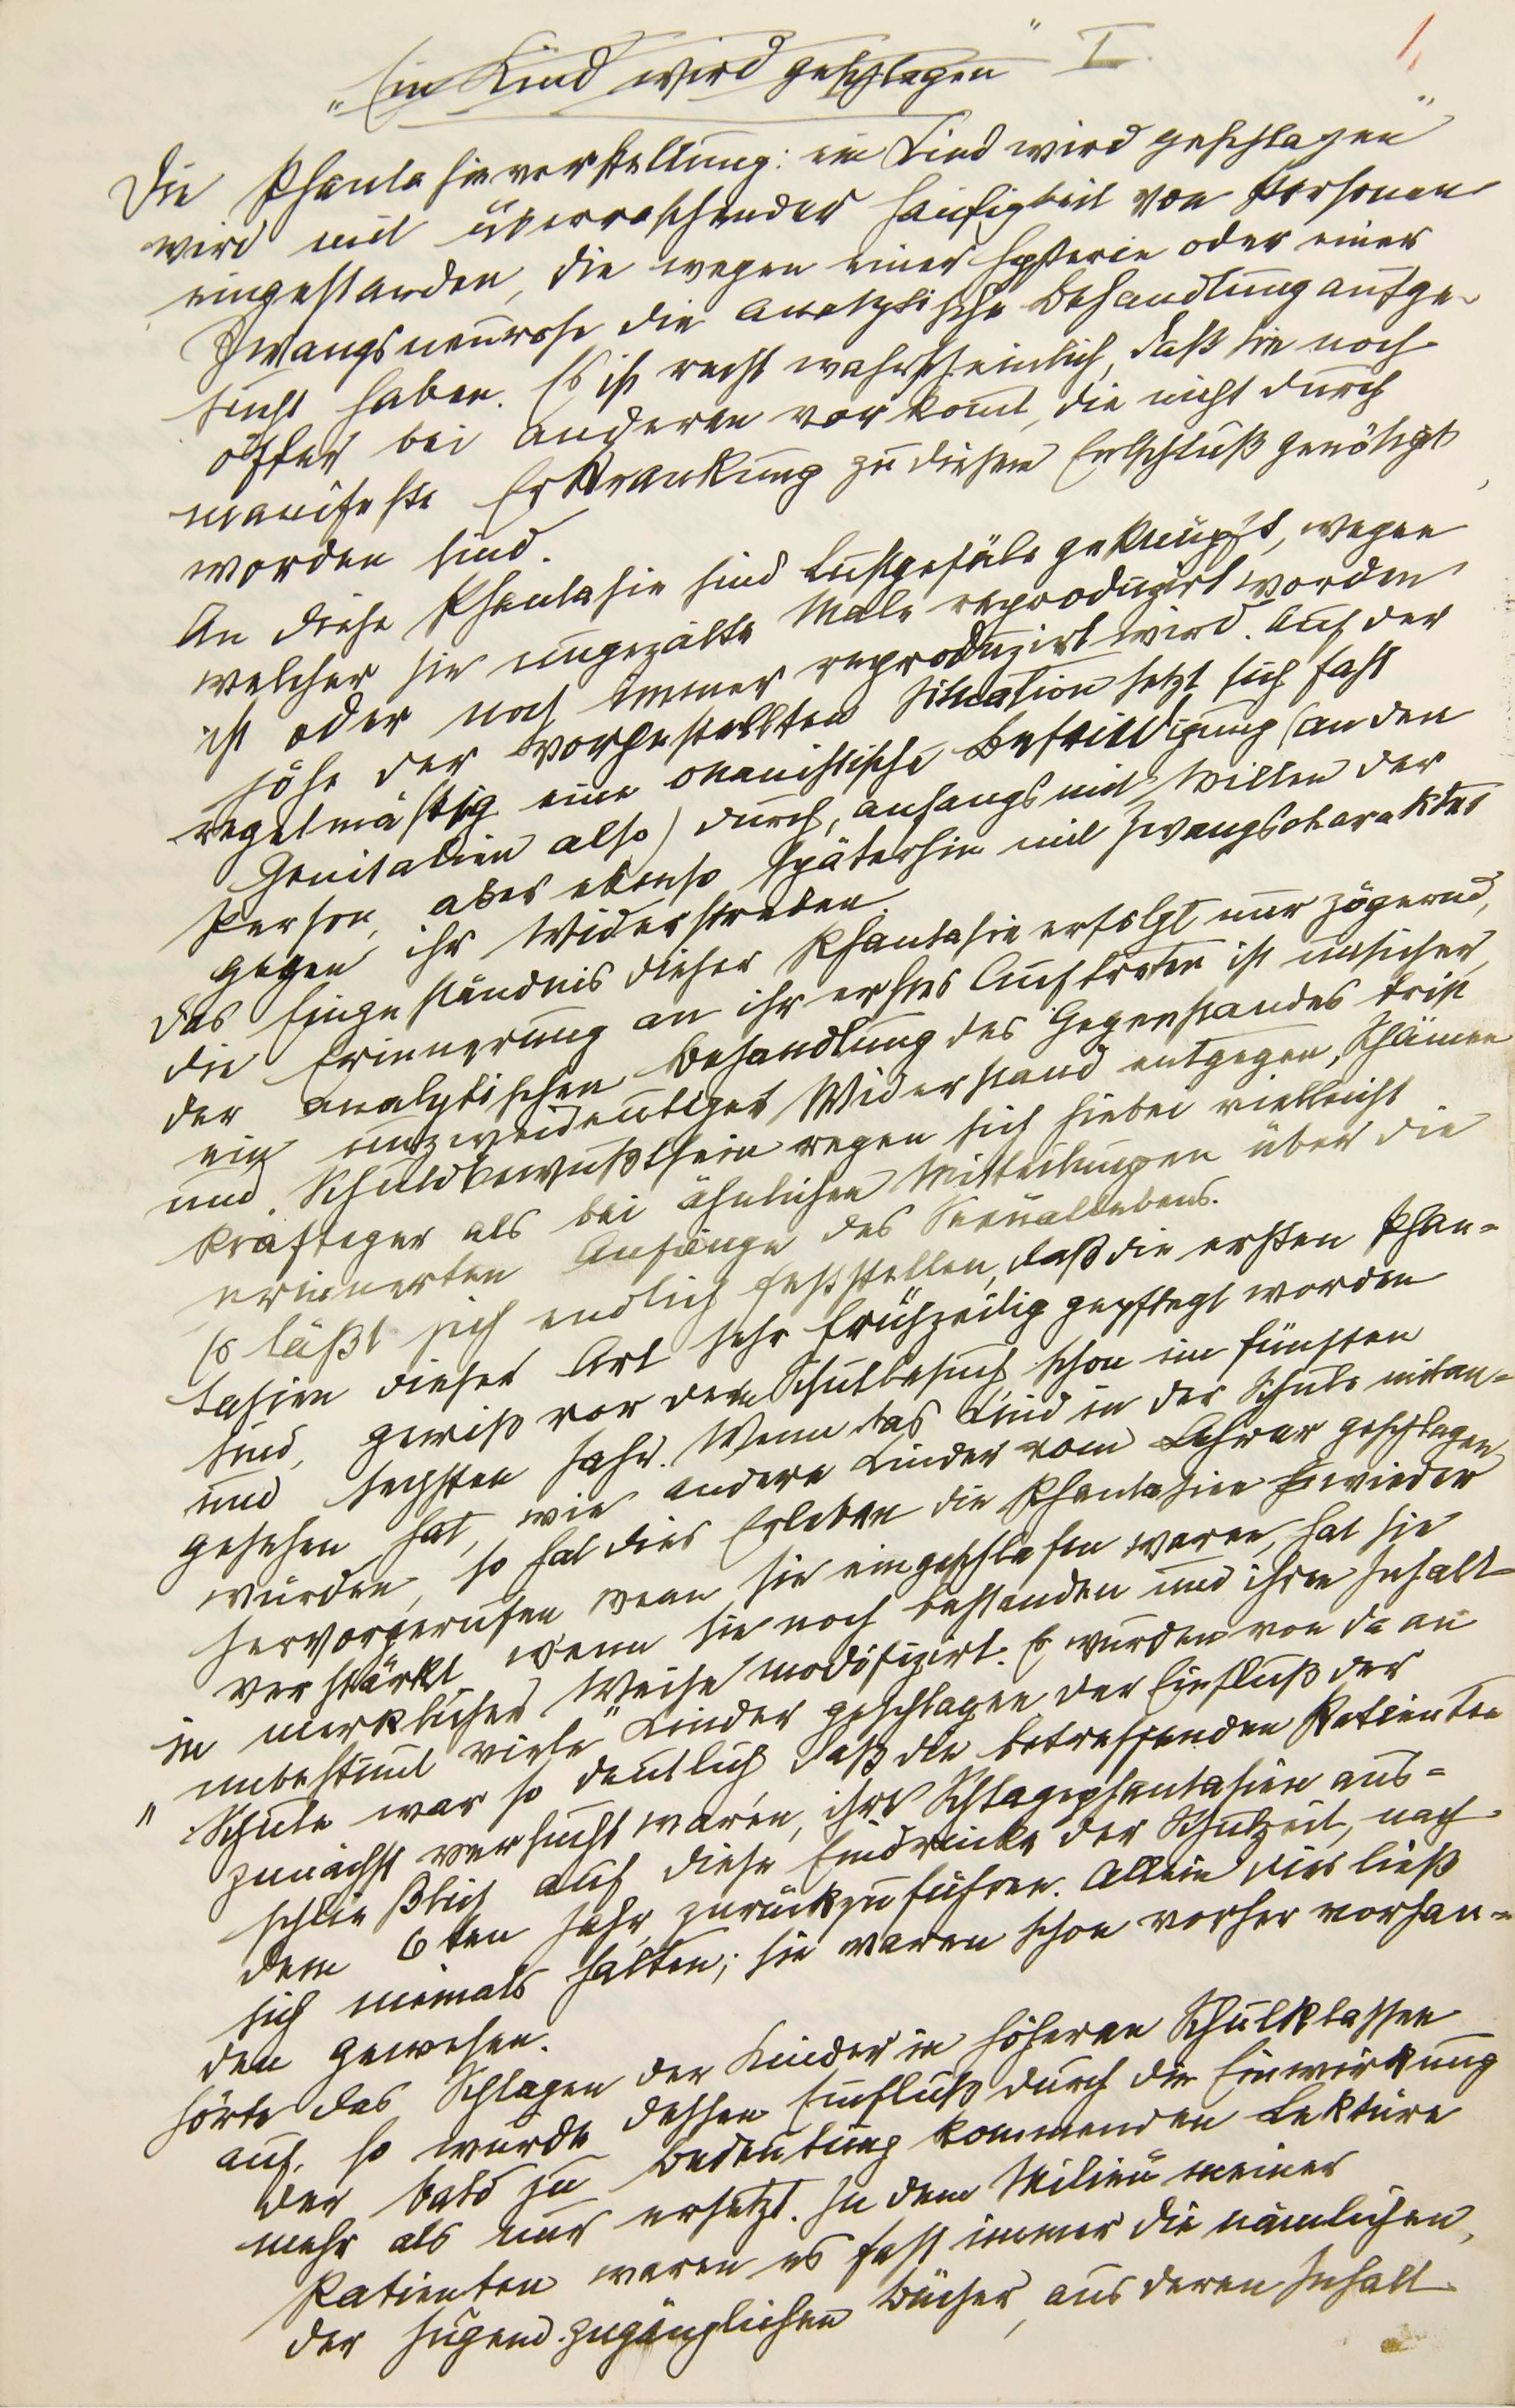 „Ein Kind wird geschlagen“ I.
1.
Die Phantasievorstellung: ein Kind wird geschlagen“
wird mit überraschender Häufigkeit von Personen
eingestanden, die wegen einer Hysterie oder einer
Zwangsneurose die analytische Behandlung aufge-
sucht haben. Es ist recht wahrscheinlich, daß sie noch
öfter bei anderen vorkomt, die nicht durch
manifeste Erkrankung zu diesem Entschluß genötigt
worden sind.
An diese Phantasie sind Lustgefüle geknüpft, wegen
welcher sie ungezälte Male reproduzirt worden
ist oder noch immer reproduzirt wird. Auf der
Höhe der vorgestellten Situation setzt sich fast
regelmäßig eine onanistische Befriedigung (an den
Genitalien also) durch, anfangs mit Willen der
Person, aber ebenso späterhin mit Zwangscharakter
gegen ihr Widerstreben.
Das Eingeständnis dieser Phantasie erfolgt nur zögernd,
die Erinnerung an ihr erstes Auftreten ist unsicher,
der analytischen Behandlung des Gegenstandes tritt
ein unzweideutiger Widerstand entgegen, Schämen
und Schuldbewußtsein regen sich hiebei vielleicht
kräftiger als bei ähnlichen Mitteilungen über die
erinnerten Anfänge des Sexuallebens.
Es läßt sich endlich feststellen, daß die ersten Phan-
tasien dieser Art sehr frühzeitig gepflegt worden
sind, gewiß vor dem Schulbesuch schon im fünften
und sechsten Jahr. Wenn das Kind in der Schule mitan-
gesehen hat, wie andere Kinder vom Lehrer geschlagen
wurden, so hat dies Erleben die Phantasien wieder
hervorgerufen wenn sie eingeschlafen waren, hat sie
verstärkt wenn sie noch bestanden und ihren Inhalt
in merklicher Weise modifizirt. Es wurden von da an
„unbestimt viele“ Kinder geschlagen Der Einfluß der
Schule war so deutlich daß die betreffenden Patienten
zunächst versucht waren, ihre Schlagephantasien aus-
schließlich auf diese Eindrücke der Schulzeit, nach
dem 6ten Jahr, zurückzuführen. Allein dies ließ
sich niemals halten; sie waren schon vorher vorhan-
den gewesen.
Hörte das Schlagen der Kinder in höheren Schulklassen
auf, so wurde dessen Einfluß durch die Einwirkung
der bald zu Bedeutung kommenden Lektüre
mehr als nur ersetzt. In dem Milieu meiner
Patienten waren es fast immer die nämlichen,
der Jugend zugänglichen Bücher, aus deren Inhalt